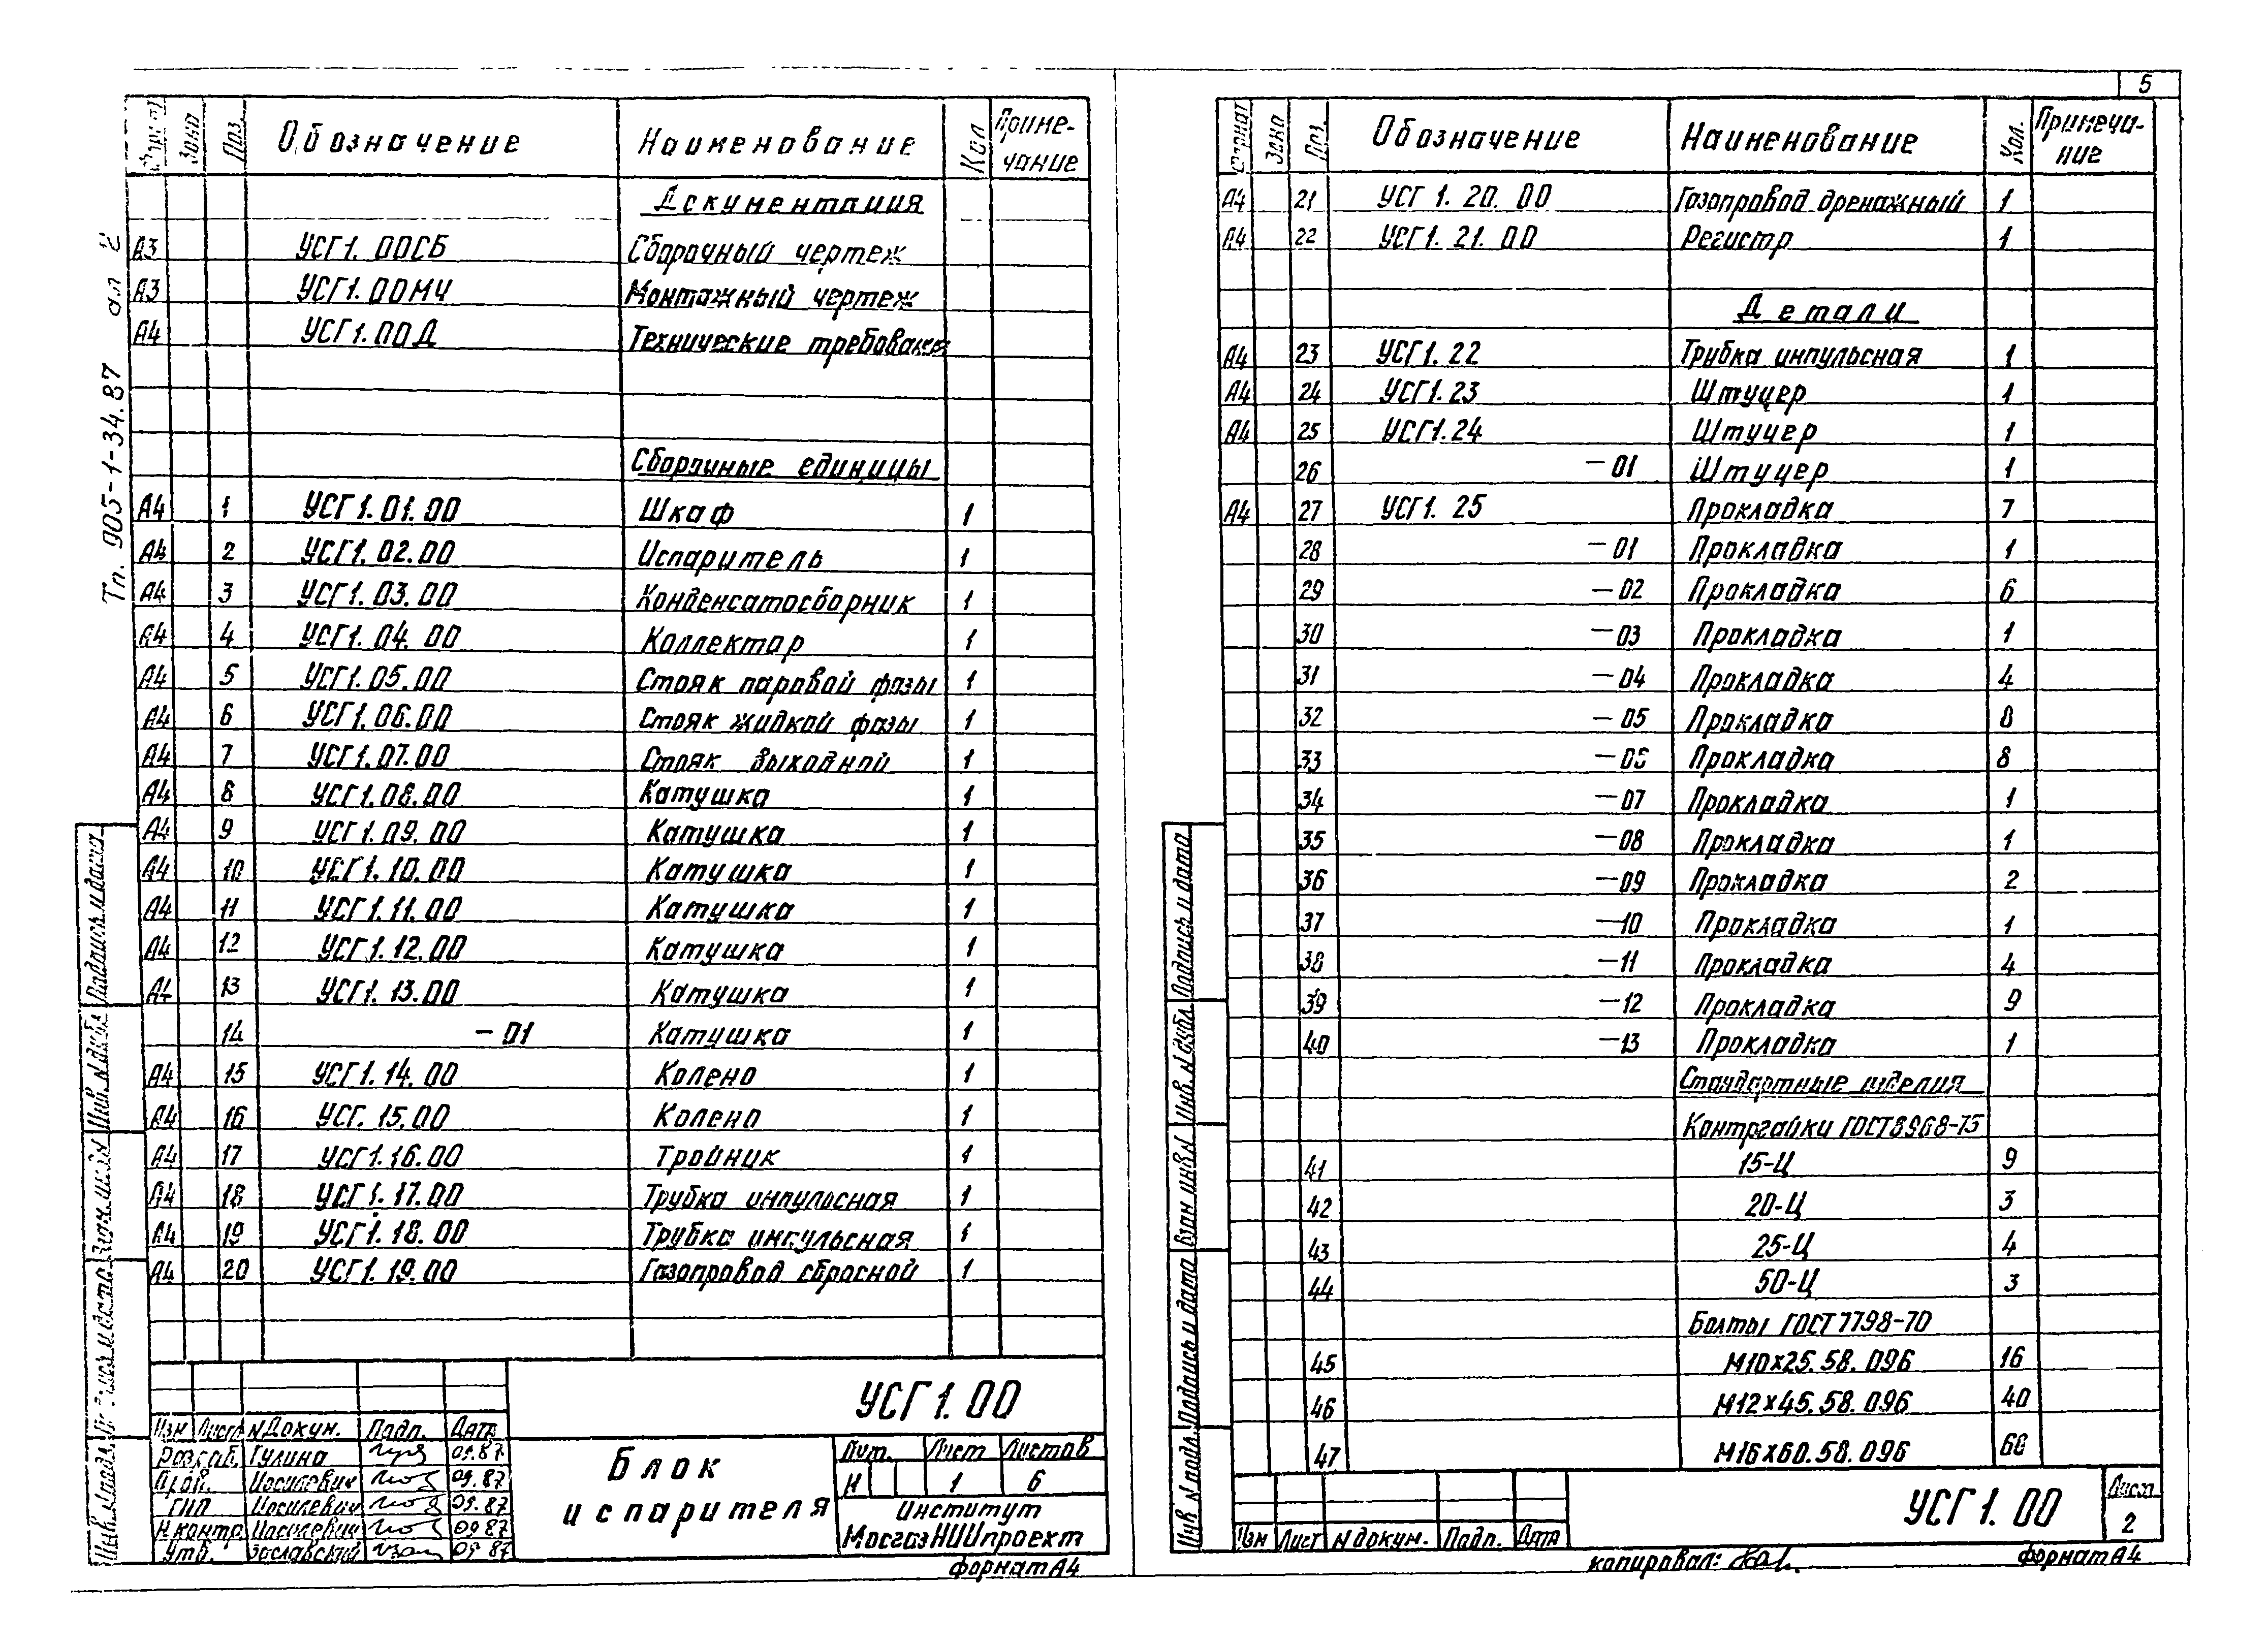 5
Тп. 905-1-34.87 ал 2
Формат Зона Поз. Обозначение Наименование Кол Примечание
Документация
А3 УСГ1.00СБ Сборочный чертеж
А3 УСГ1.00МЧ Монтажный чертеж
А4 УСГ1.00Д Технические требования
Сборочные единицы
А4 1 УСГ1.01.00 Шкаф 1
А4 2 УСГ1.02.00 Испаритель 1
А4 3 УСГ1.03.00 Конденсатосборник 1
А4 4 УСГ1.04.00 Коллектор 1
А4 5 УСГ1.05.00 Стояк паровой фазы 1
А4 6 УСГ1.06.00 Стояк жидкой фазы 1
А4 7 УСГ1.07.00 Стояк выходной 1
А4 8 УСГ1.08.00 Катушка 1
А4 9 УСГ1.09.00 Катушка 1
А4 10 УСГ1.10.00 Катушка 1
А4 11 УСГ1.11.00 Катушка 1
А4 12 УСГ1.12.00 Катушка 1
А4 13 УСГ1.13.00 Катушка 1
14 -01 Катушка 1
А4 15 УСГ1.14.00 Колено 1
А4 16 УСГ.15.00 Колено 1
А4 17 УСГ1.16.00 Тройник 1
А4 18 УСГ1.17.00 Трубка импульсная 1
А4 19 УСГ1.18.00 Трубка импульсная 1
А4 20 УСГ1.19.00 Газопровод сбросной 1
Инв. N подл. Подпись и дата Взам. инв. N Инв. N дубл. Подпись и дата
УСГ1.00
Изм Лист N Докум. Подп. Дата
Разраб. Гулина 09.87
Пров. Иосилевич 09.87
ГИП Иосилевич 09.87
Н.контр Иосилевич 09 87
Утв. Заславский 09 87
Блок
испарителя
Лит. Лист Листов
И 1 6
Институт
МосгазНИИпроект
Формат А4
Формат Зона Поз. Обозначение Наименование Кол. Примечание
А4 21 УСГ 1.20.00 Газопровод дренажный 1
А4 22 УСГ1.21.00 Регистр 1
Детали
А4 23 УСГ1.22 Трубка импульсная 1
А4 24 УСГ1.23 Штуцер 1
А4 25 УСГ1.24 Штуцер 1
26 -01 Штуцер 1
А4 27 УСГ1.25 Прокладка 7
28 -01 Прокладка 1
29 -02 Прокладка 6
30 -03 Прокладка 1
31 -04 Прокладка 4
32 -05 Прокладка 8
33 -06 Прокладка 8
34 -07 Прокладка 1
35 -08 Прокладка 1
36 -09 Прокладка 2
37 -10 Прокладка 1
38 -11 Прокладка 4
39 -12 Прокладка 9
40 -13 Прокладка 1
Стандартные изделия
Контргайки ГОСТ 8968-75
41 15-Ц 9
42 20-Ц 3
43 25-Ц 4
44 50-Ц 3
Болты ГОСТ 7798-70
45 М10х25.58.096 16
46 М12х45.58.096 40
47 М16х60.58.096 60
Инв. N подл. Подпись и дата Взам инв N Инв. N дубл. Подпись и дата
Изм Лист N докум. Подп. Дата
УСГ1.00
Лист
2
копировал:
Формат А4